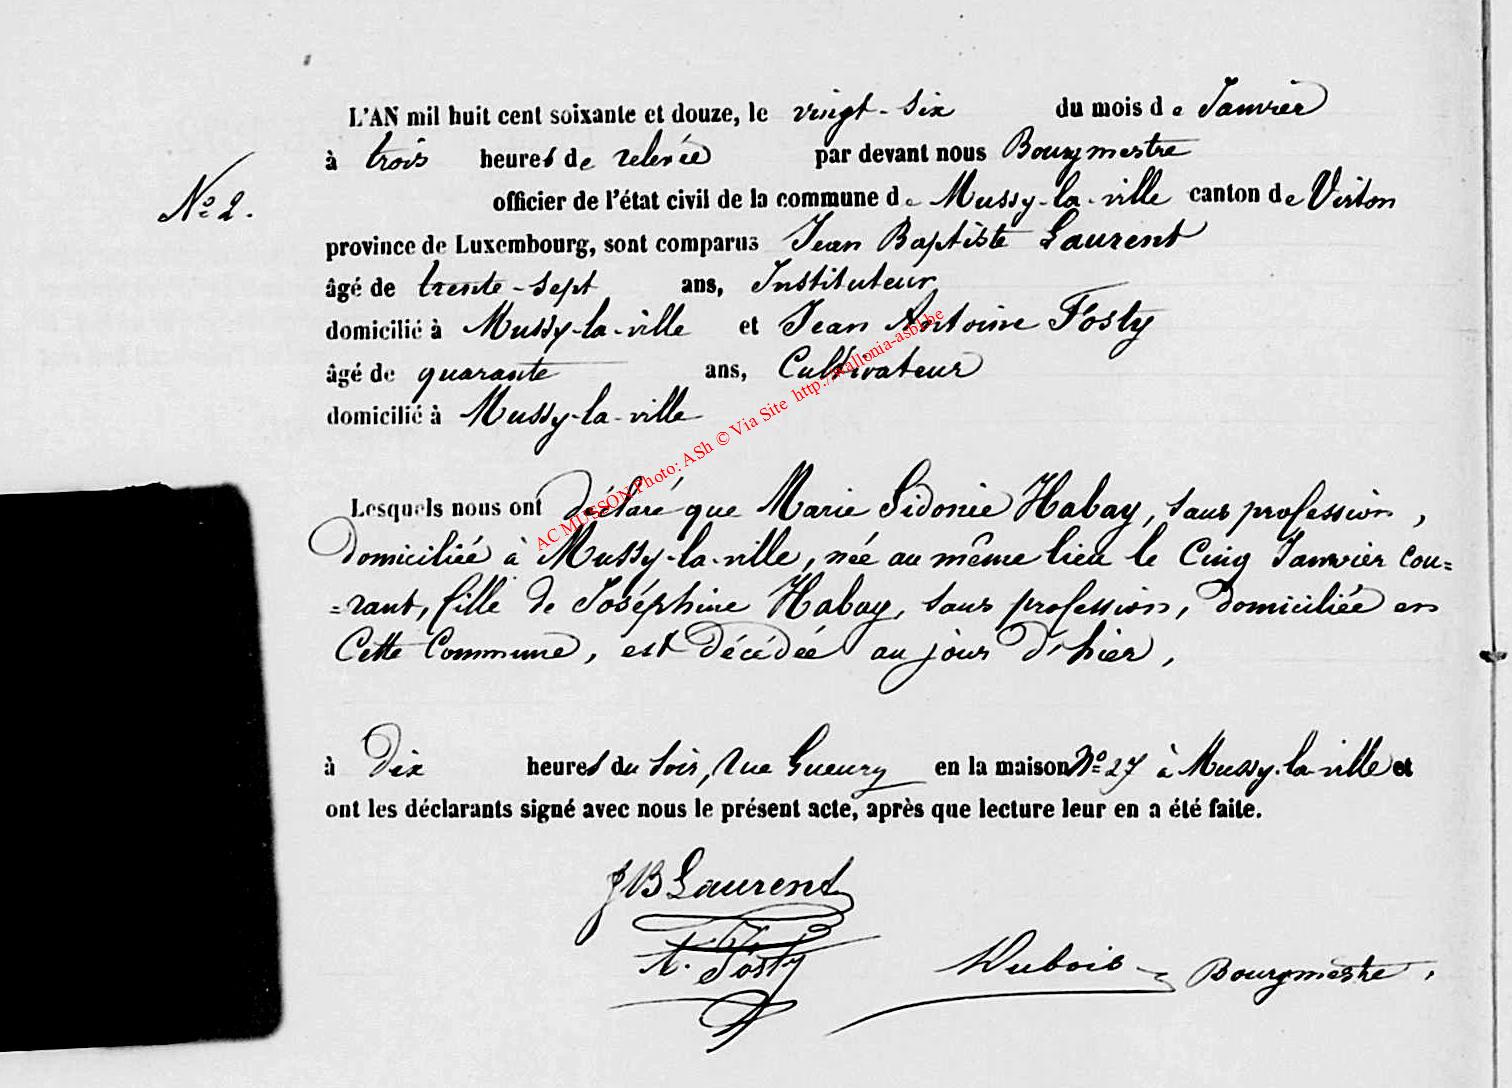 L'AN mil huit cent soixante et douze, le vingt-six du mois de Janvier
à trois heures de relevée par devant nous Bourgmestre
No 2.
officier de l'état civil de la commune de Mussy-la-ville canton de Virton
province de Luxembourg, sont comparus Jean Baptiste Laurent
âgé de trente-sept ans, Instituteur
domicilié à Mussy-la-ville et Jean Antoine Fosty
âgé de quarante ans, Cultivateur
domicilié à Mussy-la-ville
AC MUSSON Photo: ASh © Via Site http://wallonia-asbl.be
Lesquels nous ont déclaré que Marie Sidonie Habay, sans profession,
domiciliée à Mussy-la-ville, née au même lieu le Cinq Janvier cou=
=rant, fille de Joséphine Habay, sans profession, domiciliée en
Cette Commune, est décédée au jour d'hier,
à Dix heures du soir, rue Gueury en la maison No 27 à Mussy-la-ville et
ont les déclarants signé avec nous le présent acte, après que lecture leur en a été faite.
JB Laurent
A. Fosty
Dubois Bourgmestre,